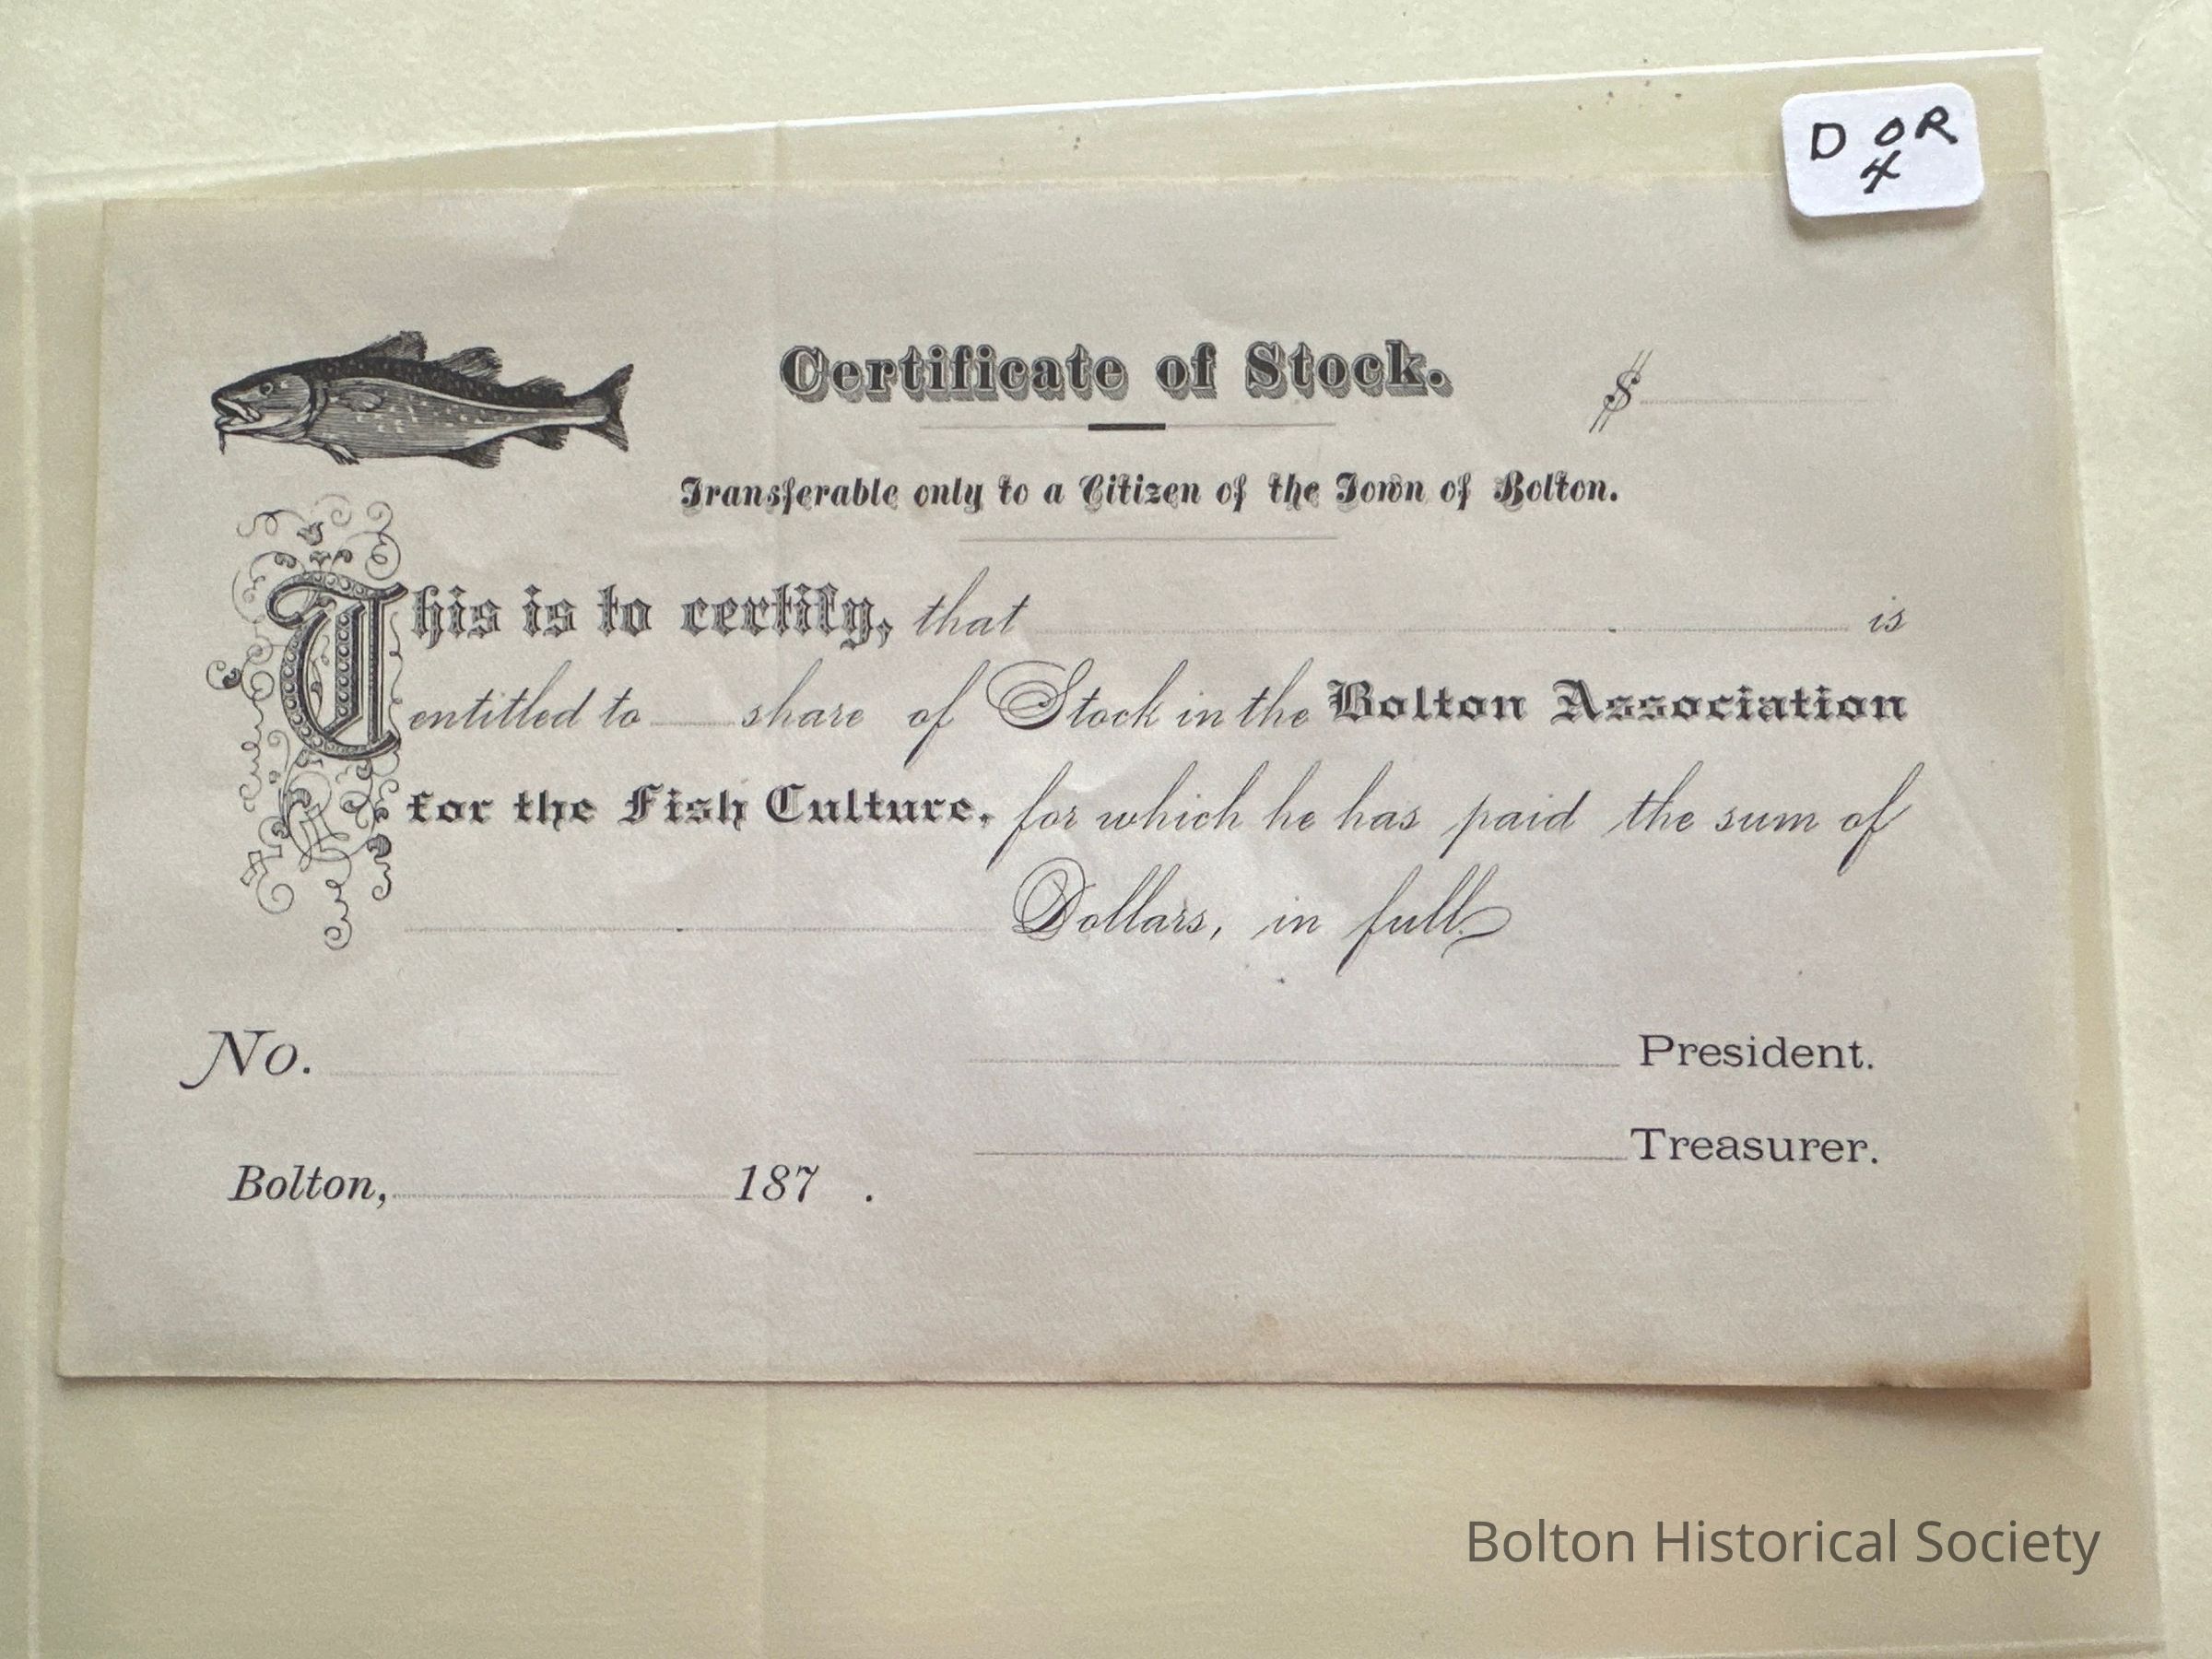 D OR
4
Certificate of Stock.
$
Transferable only to a Citizen of the Town of Bolton.
This is to certify, that is
entitled to share of Stock in the Bolton Association
for the Fish Culture, for which he has paid the sum of
Dollars, in full.
No.
President.
Treasurer.
Bolton, 187 .
Bolton Historical Society